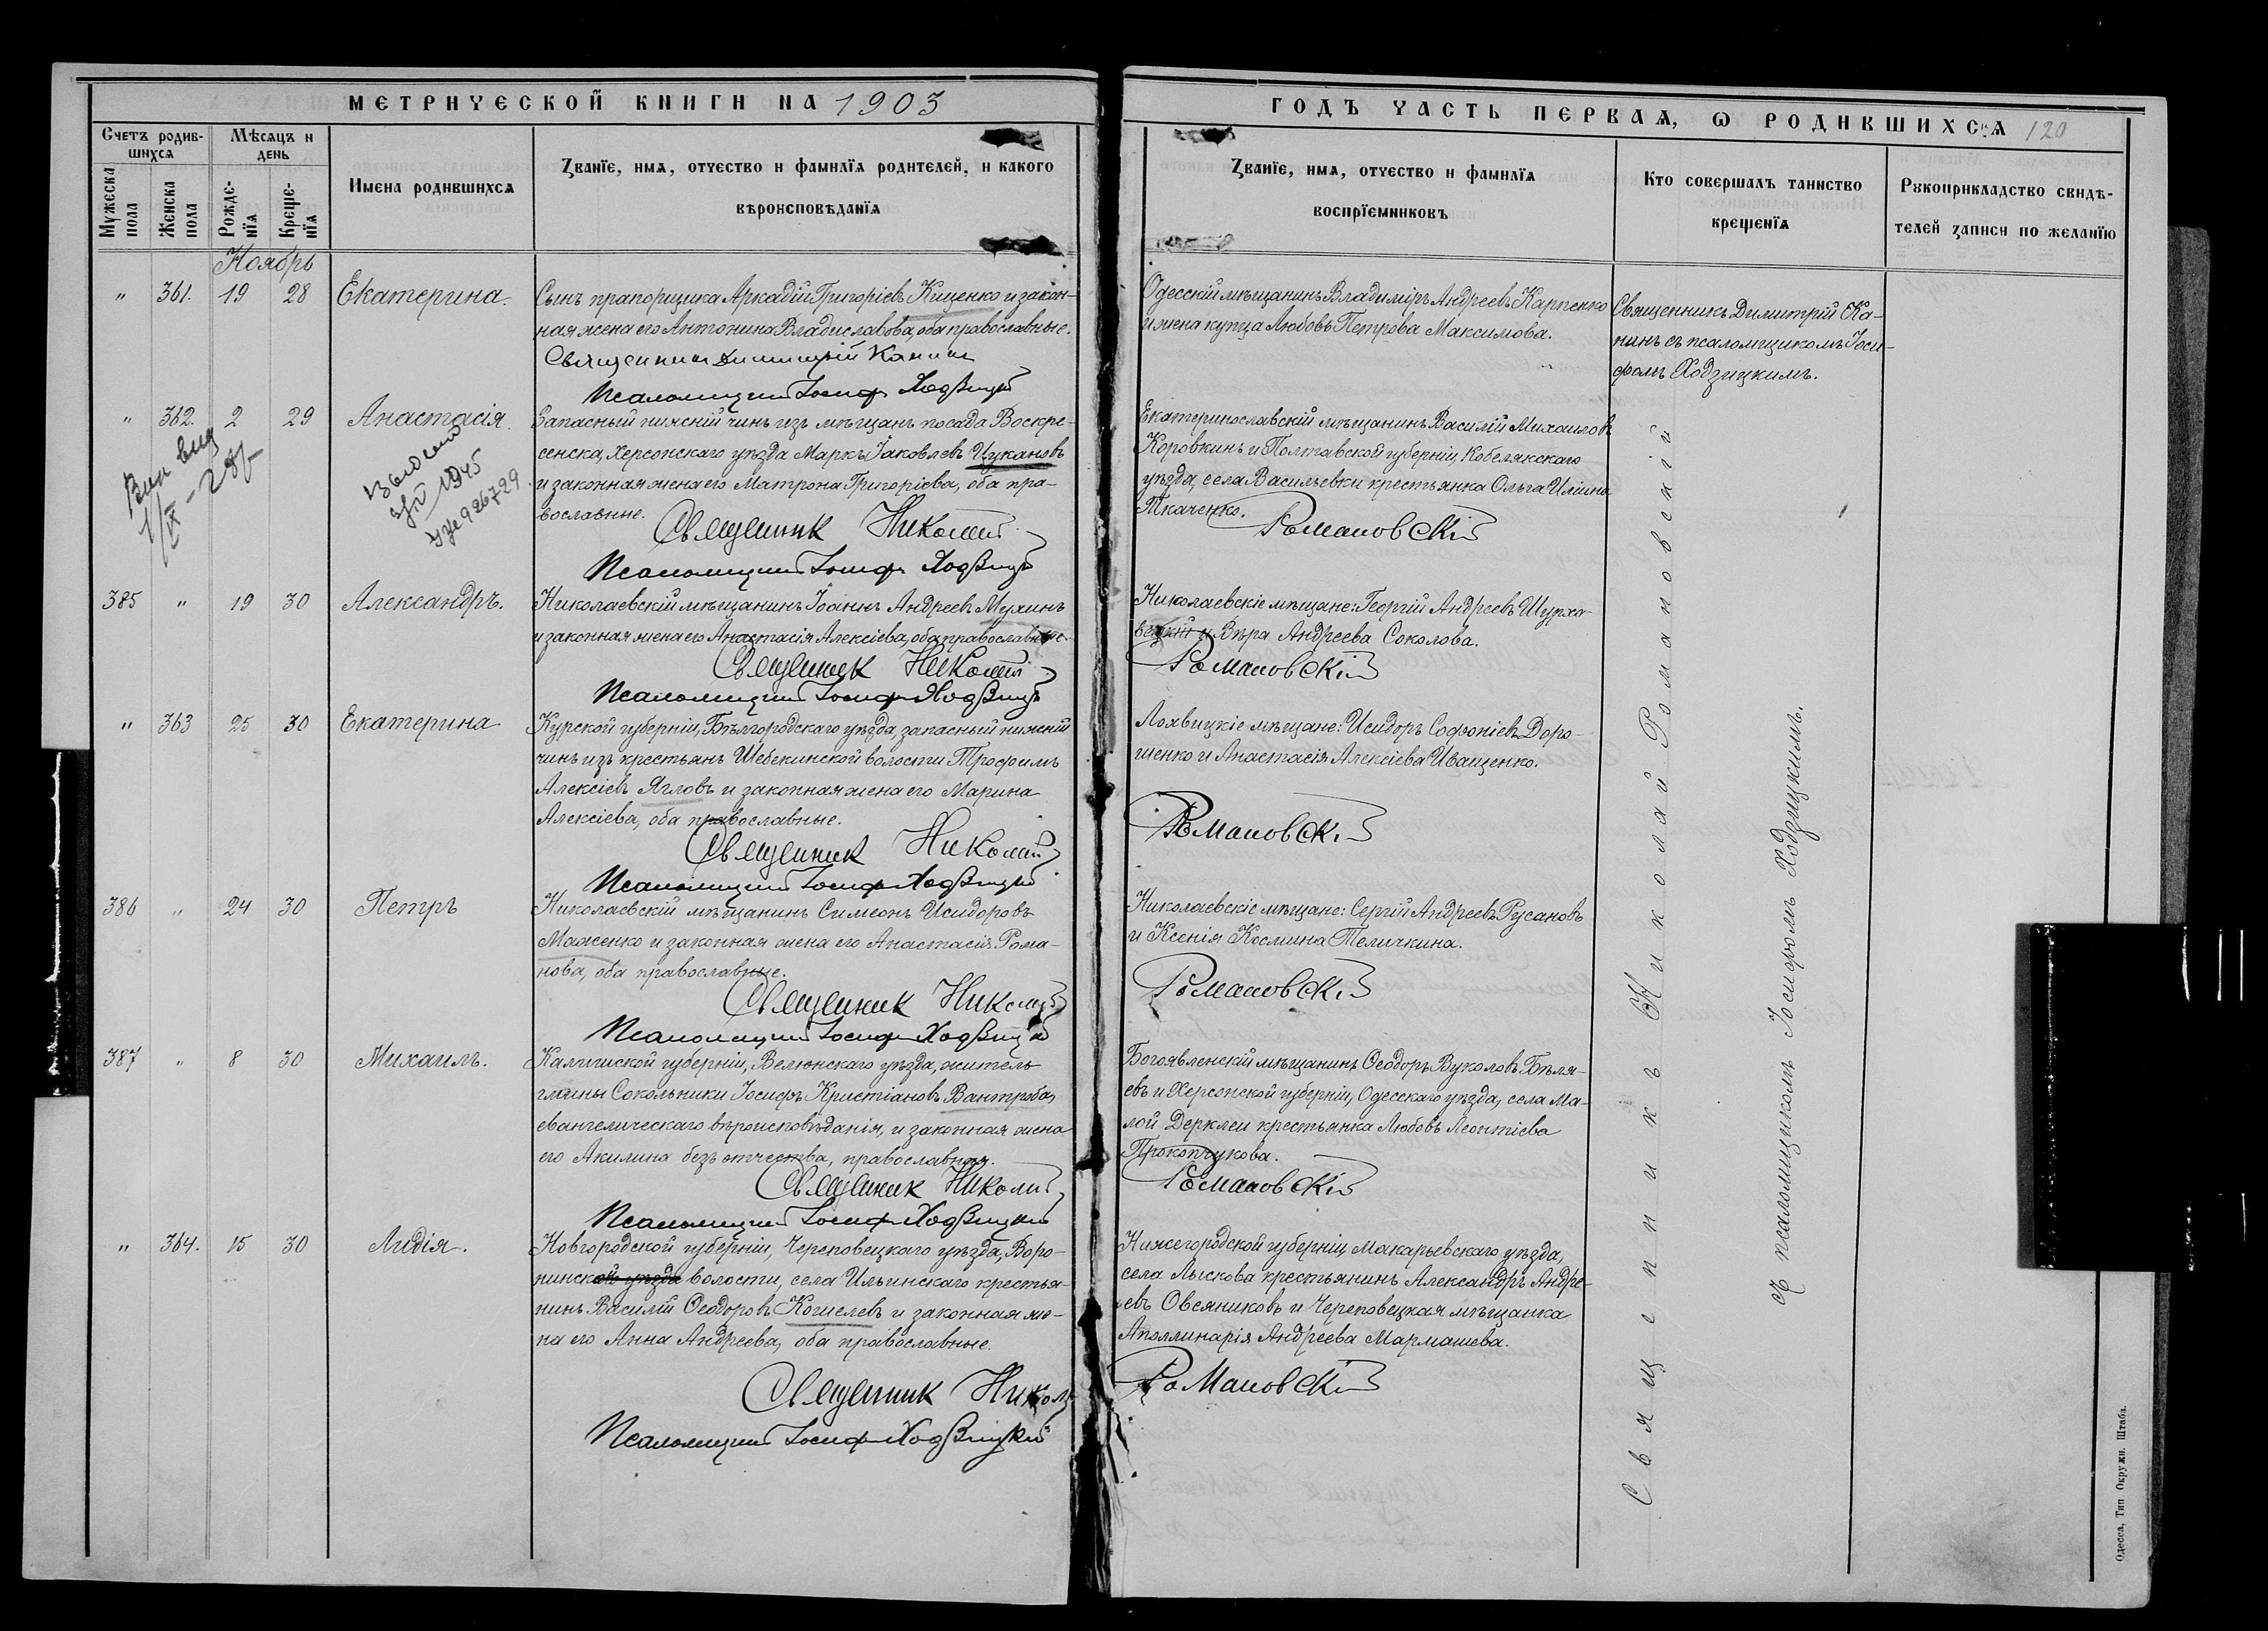 МЕТРИЧЕСКОЙ КНИГИ НА 1903
Счетъ родив-
шихся
Мѣсяцъ и
день
Имена родившихся
Званїе, имя, отчество и фамилїя родителей, и какого
вѣроисповѣданїя
Мужеска
пола
Женска
пола
Рожде-
нїя
Креще-
нїя
Ноябрь
" 361. 19 28 Екатерина.
Сынъ прапорщика Аркадій Григоріевъ Куценко и закон-
ная жена его Антонина Владиславова, оба православные.
Священникъ Димитрій Канинъ
Псаломщикъ Іосифъ Ходзицкій
" 362. 2 29 Анастасія.
Запасный нижній чинъ изъ мѣщанъ посада Воскре-
сенска, Херсонскаго уѣзда Маркъ Іаковлевъ Цукановъ
и законная жена его Матрона Григоріева, оба пра-
вославные.
Священникъ Николай
Псаломщикъ Іосифъ Ходзицкій
1945
926729
385 " 19 30 Александръ.
Николаевскій мѣщанинъ Іоаннъ Андреевъ Мухинъ
и законная жена его Анастасія Алексіева, оба православные.
Священникъ Николай
Псаломщикъ Іосифъ Ходзицкій
" 363 25 30 Екатерина
Курской губерніи, Бѣлгородскаго уѣзда, запасный нижній
чинъ изъ крестьянъ Шебекинской волости Трофимъ
Алексіевъ Ягловъ и законная жена его Марина
Алексіева, оба православные.
Священникъ Николай
Псаломщикъ Іосифъ Ходзицкій
386 " 24 30 Петръ
Николаевскій мѣщанинъ Симеонъ Исидоровъ
Маженко и законная жена его Анастасія Рома-
нова, оба православные.
Священникъ Николай
Псаломщикъ Іосифъ Ходзицкій
387 " 8 30 Михаилъ.
Калишской губерніи, Велюнскаго уѣзда, житель
гмины Сокольники Іосифъ Кристіановъ Вантроба,
евангелическаго вѣроисповѣданія, и законная жена
его Акилина безъ отчества, православная.
Священникъ Николай
Псаломщикъ Іосифъ Ходзицкій
" 364. 15 30 Лидія.
Новгородской губерніи, Череповецкаго уѣзда, Воро-
нинской уѣзда волости, села Ильинскаго крестья-
нинъ Василій Ѳеодоровъ Кошелевъ и законная же-
на его Анна Андреева, оба православные.
Священникъ Николай
Псаломщикъ Іосифъ Ходзицкій
ГОДЪ ЧАСТЬ ПЕРВАЯ, Ѡ РОДИВШИХСЯ 120
Званїе, имя, отчество и фамилїя
воспрїемниковъ
Кто совершалъ таинство
крещенїя
Рукоприкладство свидѣ-
телей записи по желанїю
Одесскій мѣщанинъ Владиміръ Андреевъ Карпенко
и жена купца Любовь Петрова Максимова.
Священникъ Димитрій Ка-
нинъ съ псаломщикомъ Іоси-
фомъ Ходзицкимъ.
Екатеринославскій мѣщанинъ Василій Михаиловъ
Коровкинъ и Полтавской губерніи, Кобелякскаго
уѣзда, села Васильевки крестьянка Ольга Иліина
Ткаченко.
Романовскій
Николаевскіе мѣщане: Георгій Андреевъ Шурхо-
вецкій и Вѣра Андреева Соколова.
Романовскій
Лохвицкіе мѣщане: Исидоръ Софоніевъ Доро-
шенко и Анастасія Алексіева Иващенко.
Романовскій
Николаевскіе мѣщане: Сергій Андреевъ Русановъ
и Ксенія Космина Теличкина.
Романовскій
Богоявленскій мѣщанинъ Ѳеодоръ Вуколовъ Бѣля-
евъ и Херсонской губерніи, Одесскаго уѣзда, села Ма-
лой Дерклеи крестьянка Любовь Леонтіева
Прокопчукова.
Романовскій
Нижегородской губерніи Макарьевскаго уѣзда,
села Лыскова крестьянинъ Александръ Андре-
евъ Овсяниковъ и Череповецкая мѣщанка
Аполлинарія Андреева Мармашева.
Романовскій
Священникъ Николай Романовскій
съ псаломщикомъ Іосифомъ Ходзицкимъ.
Одесса, Тип Окружн. Штаба.